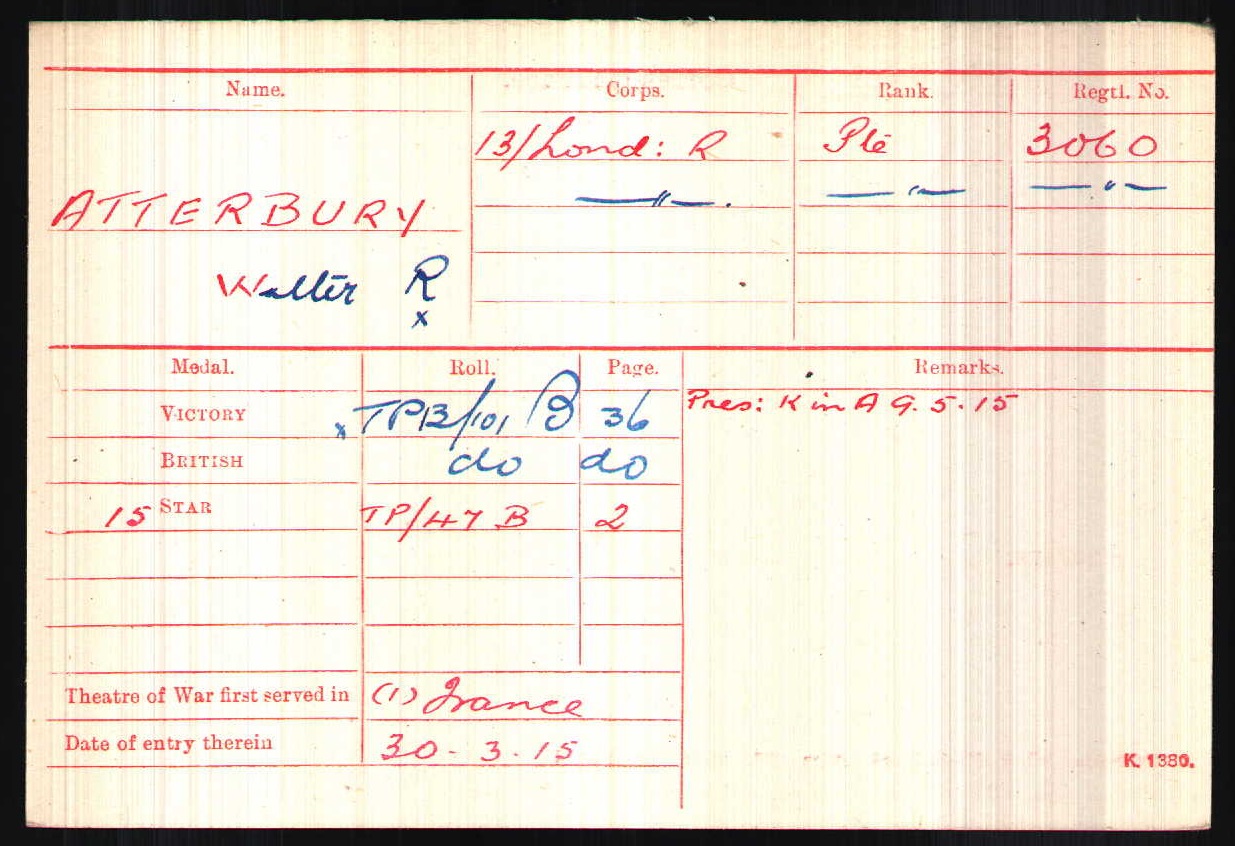 Name. Corps. Rank. Regtl. No.
13/Lond: R Pte 3060
—"—. —"— —"—
ATTERBURY
Walter R
x
Medal. Roll. Page. Remarks.
VICTORY x TP13/101 B 36 Pres: K in A 9.5.15
BRITISH do do
15 STAR TP/47 B 2
Theatre of War first served in (1) France
Date of entry therein 30-3.15
K. 1380.